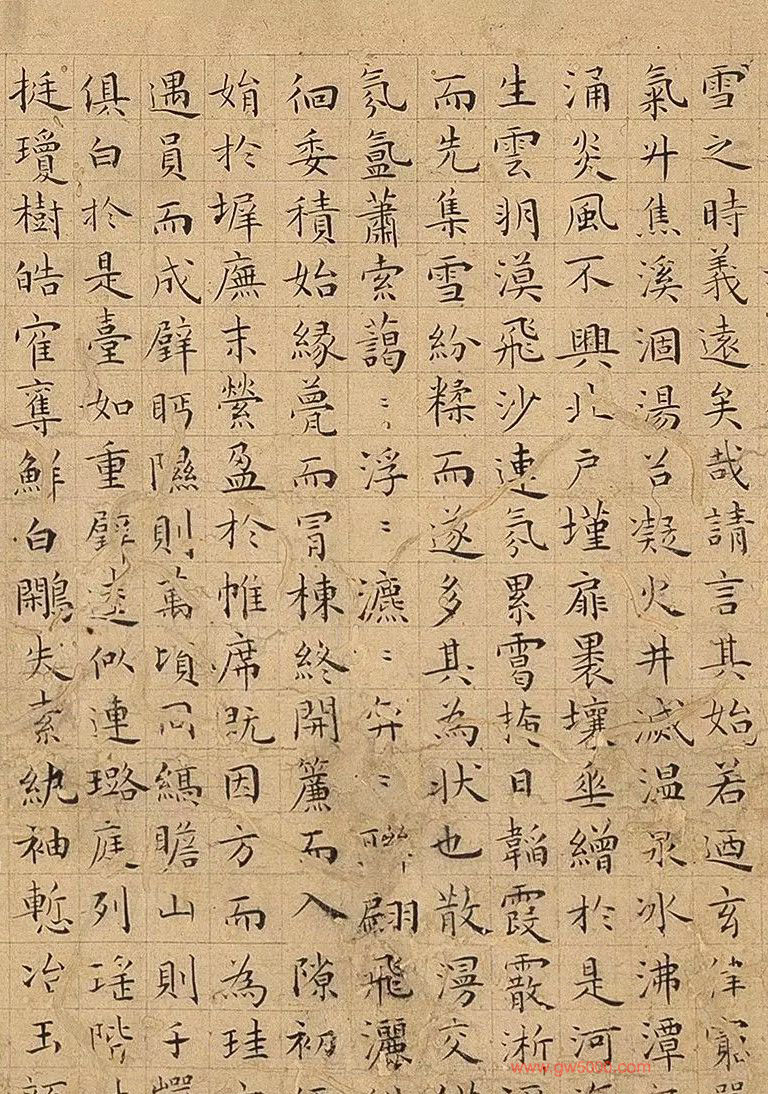 雪之時義遠矣哉請言其始若迺玄律窮
氣升焦溪涸湯谷凝火井滅温泉冰沸潭
涌炎風不興北户墐扉裸壤垂繒於是河
生雲朔漠飛沙連氛累霭掩日韜霞霰淅
而先集雪紛糅而遂多其為狀也散漫交
氛氲蕭索藹〻浮〻瀌〻弈〻聯翩飛灑
徊委積始緣甍而冒棟終開簾而入隙初
娟於墀廡末縈盈於帷席既因方而為珪
遇員而成璧眄隰則萬頃同縞瞻山則千
俱白於是臺如重璧逵似連璐庭列瑶階
挺瓊樹皓鶴奪鮮白鷴失素紈袖慙冶玉